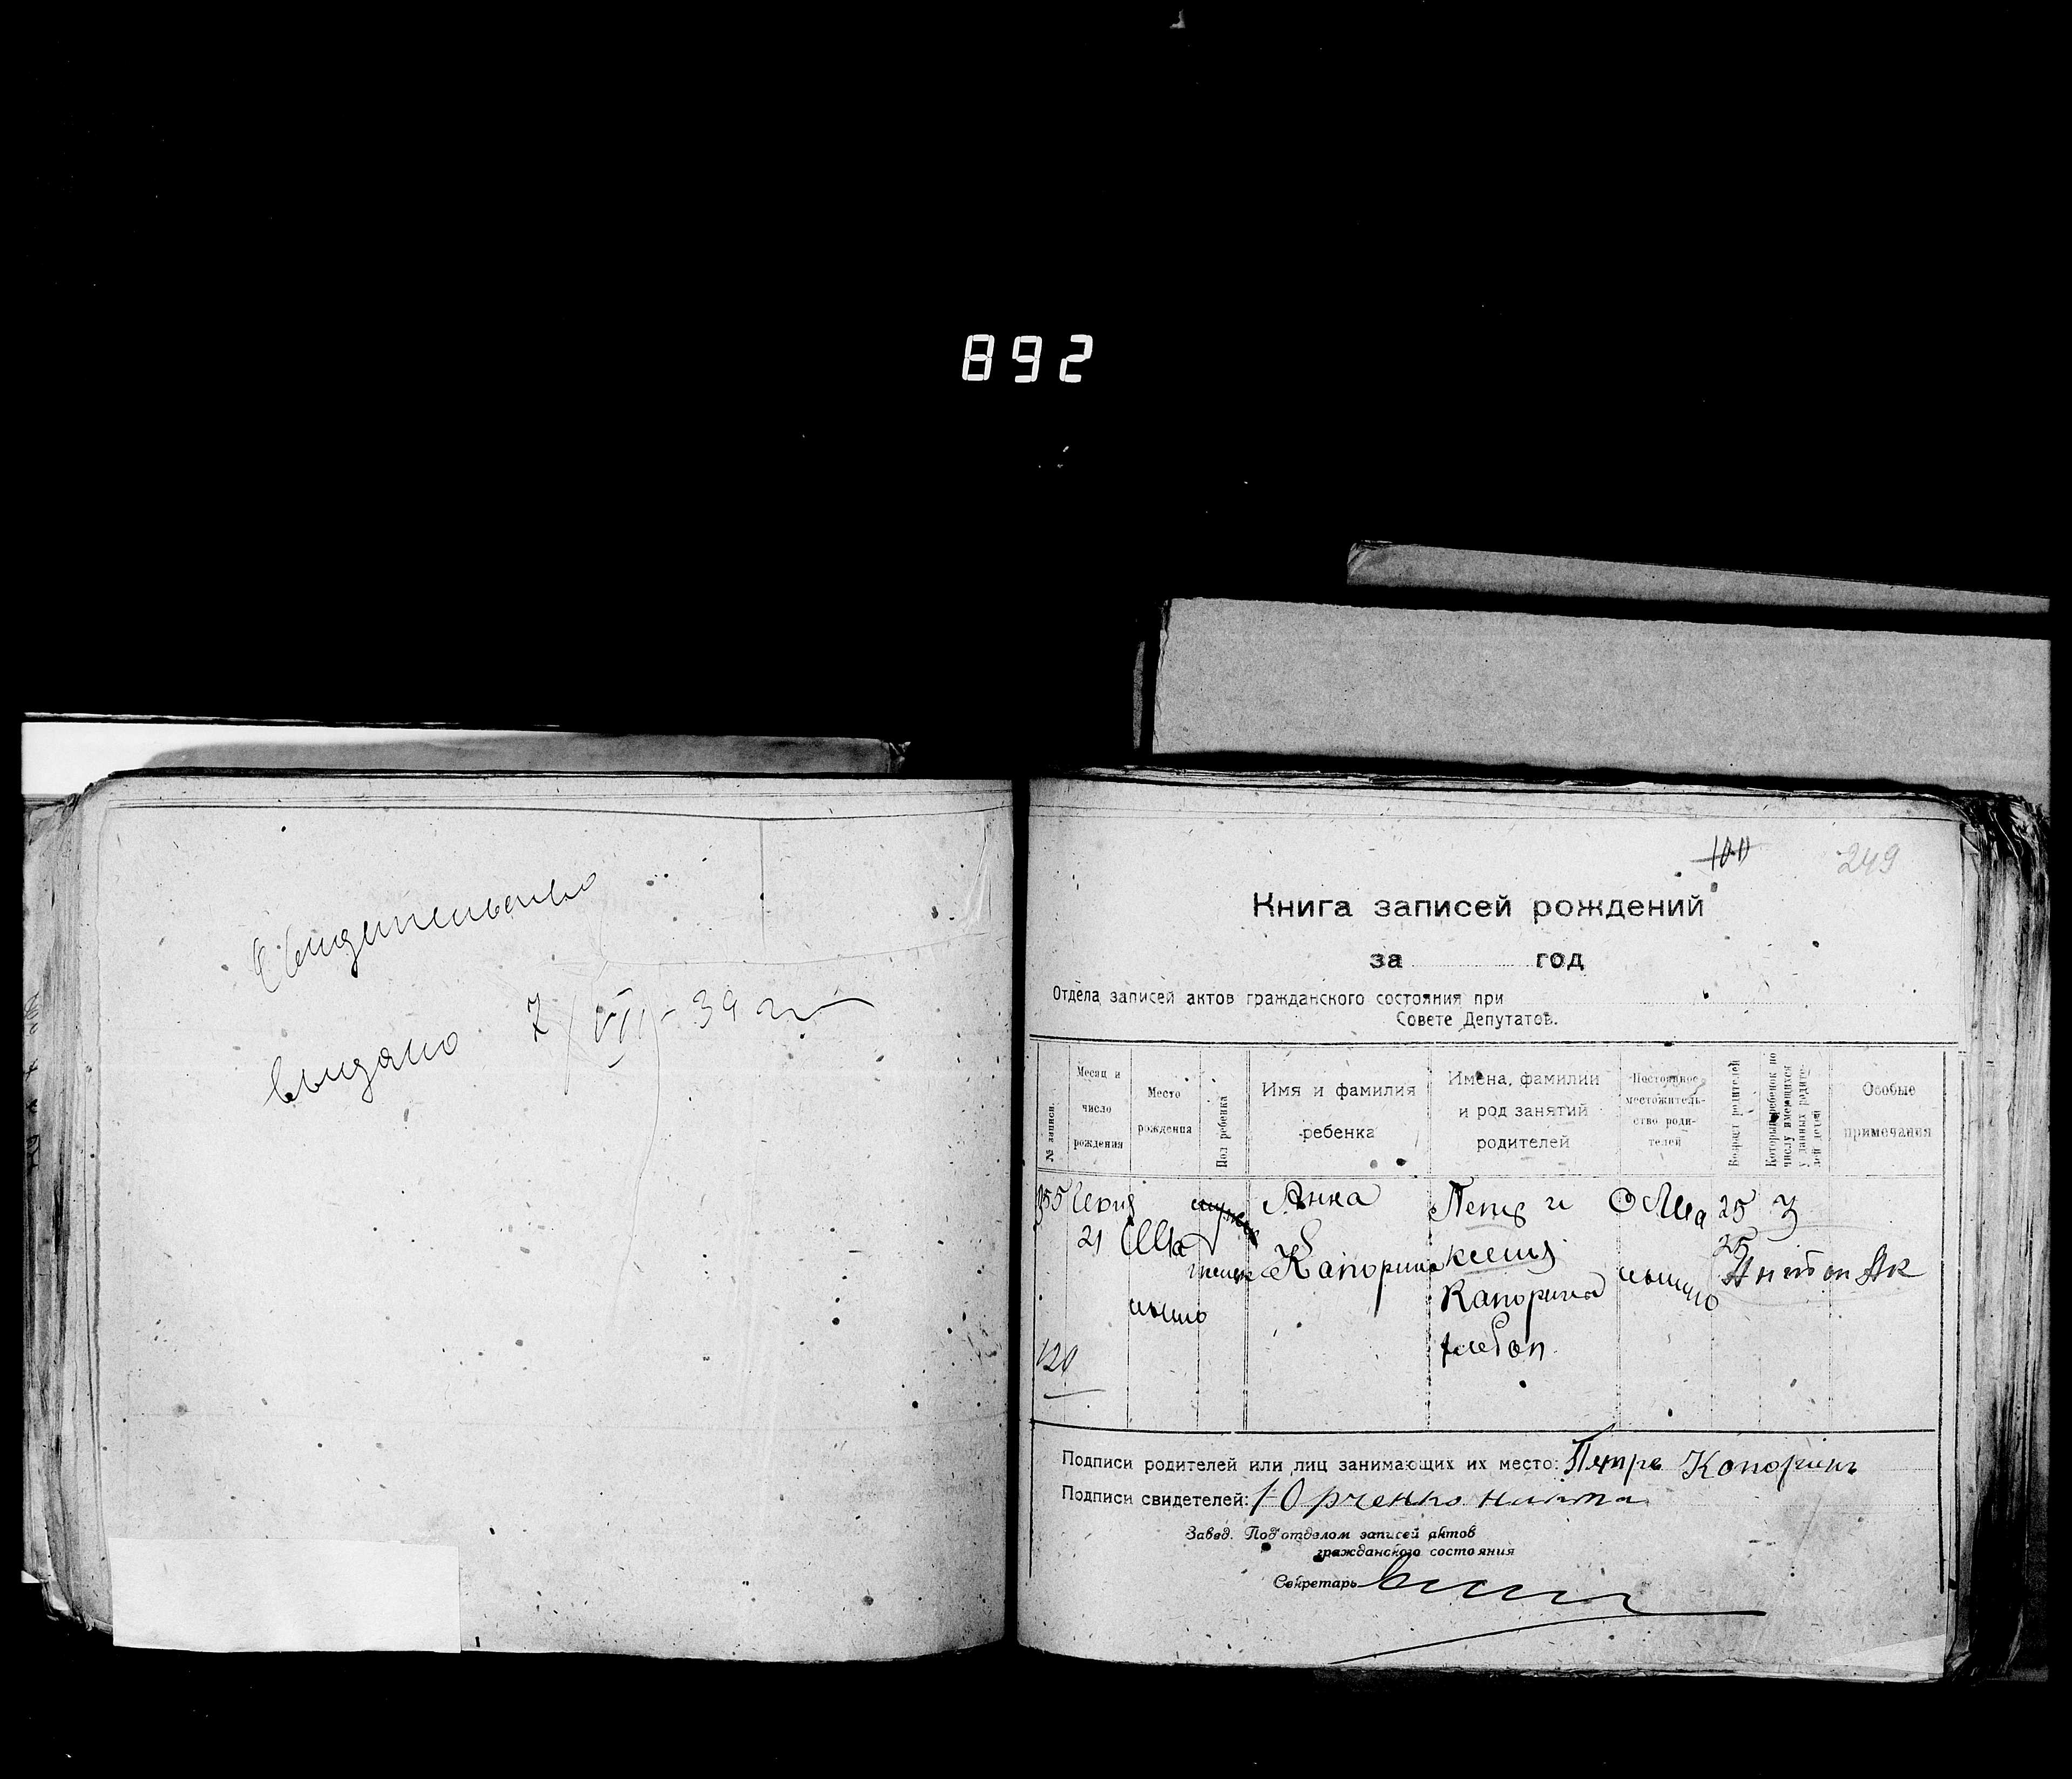 892
Свидетельство
выдано 7/VIII-39 г.
100
249
Книга записей рождений
за год
Отдела записей актов гражданского состояния при
Совете Депутатов.
№ записи.
Месяц и
число
рождения
Место
рождения
Пол ребенка
Имя и фамилия
ребенка
Имена, фамилии
и род занятий
родителей
Постоянное
местожитель-
ство роди-
телей
Возраст родителей
Который ребенок по
числу имеющихся
у данных родите-
лей детей
Особые
примечания
355 Июня Анка Петр и 25 3
21 25
Капорина
Капорина
хлебоп
120
Подписи родителей или лиц занимающих их место: Петре Копоринъ
Подписи свидетелей: Юрченко Никита
Завед. Подотделом записей актов
гражданского состояния
Секретарь